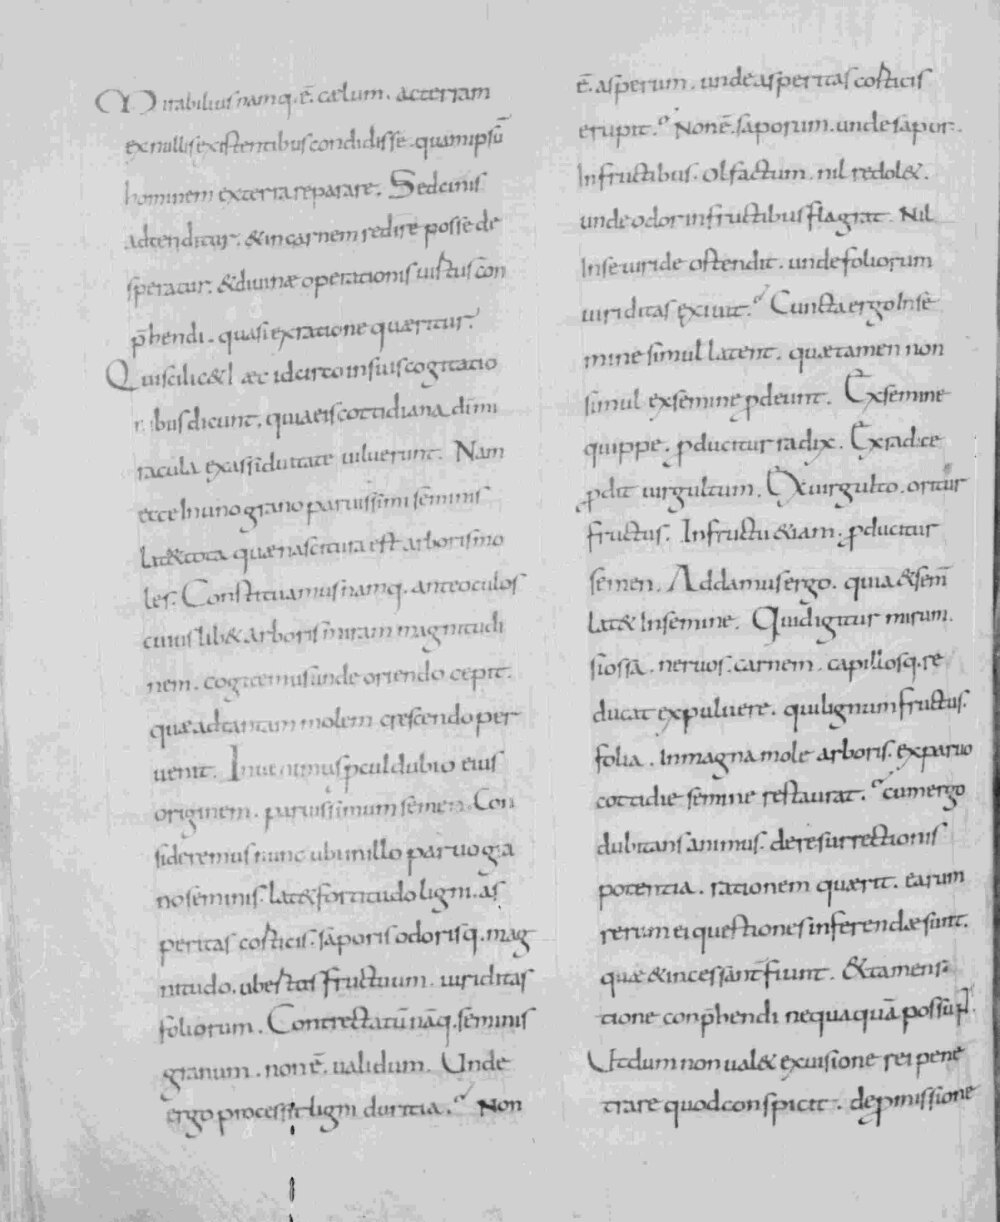 Mirabilius namq. ē. cælum. acterram
exnullis existentibus condidisse. quam ipsū
hominem exterra reparare. Sed cinis
adtenditur. & in carnem redire posse de
speratur. & divinæ operationis virtus con
p̄hendi. quasi exratione quæritur.
Qui scilic& hæc idcirco in suis cogitatio
nibus dicunt. quia eis cottidiana dei mi
racula exassiduitate viluerunt. Nam
ecce In uno grano parvissimi seminis
Lat& tota quæ nascitura est arboris mo
les. Constituamus namq. ante oculos
cuiuslib& arboris miram magnitudi
nem. cogitemus unde oriendo cepit.
quæ ad tantam molem crescendo per
venit. Invenimus pcul dubio eius
originem. parvissimum semen. Con
sideremus nunc ubi in illo parvo gra
no seminis. lat& fortitudo ligni. as
peritas costicis. saporis odorisq. mag
nitudo. ubertas fructuum. viriditas
foliorum. Contrectatū nāq. seminis
granum. non ē. validum. Unde
ergo processit ligni duritia. Non
ē. asperum. unde asperitas costicis
erupit. Non ē. saporum. unde sapor.
In fructibus. Olfactum. nil redol&.
unde odor in fructibus flagrat. Nil
In se viride ostendit. unde foliorum
viriditas exivit. Cuncta ergo In se
mine simul latent. quæ tamen non
simul exsemine pdeunt. Ex semine
quippe. pducitur radix. Ex radice
pdit virgultum. Ex virgulto. oritur
fructus. In fructu &iam. pducitur
semen. Addamus ergo. quia & sem̄
Lat& In semine. Quid igitur mirum.
si ossa. nervos. carnem. capillosq. re
ducat expulvere. qui lignum fructus.
folia. In magna mole arboris. exparvo
cottidie semine restaurat. cum ergo
dubitans animus. de resurrectionis
potentia. rationem quærit. earum
rerum ei questiones inferendæ sunt.
quæ & incessant fiunt. & tamen ra
tione conp̄hendi nequaquā possunt.
Ut dum non val& exvisione rei pene
trare quod conspicit. de pmissione